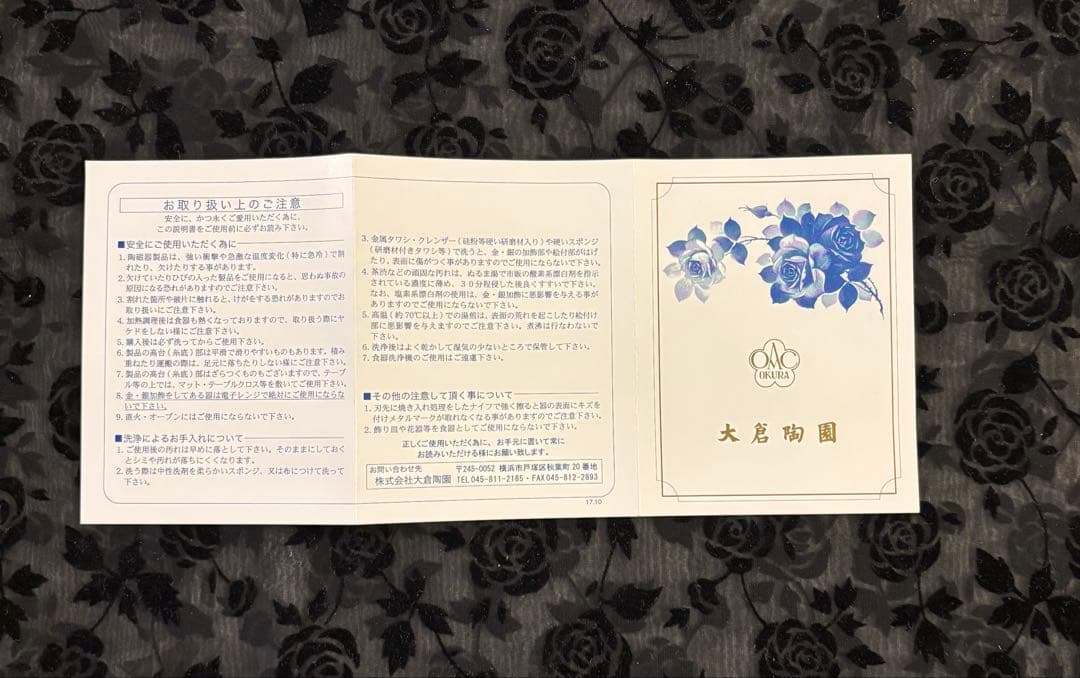 お取り扱い上のご注意
安全に、かつ永くご愛用いただく為に、
この説明書をご使用前に必ずお読み下さい。
■安全にご使用いただく為に
1. 陶磁器製品は、強い衝撃や急激な温度変化(特に急冷)で割
れたり、欠けたりする事があります。
2. 欠けていたりひびの入った製品をご使用になると、思わぬ事故の
原因になる恐れがありますのでご注意下さい。
3. 割れた箇所や破片に触れると、けがをする恐れがありますのでお
取り扱いにご注意下さい。
4. 加熱調理後は食器も熱くなっておりますので、取り扱う際にヤ
ケドをしない様にご注意下さい。
5. 購入後は必ず洗ってからご使用下さい。
6. 製品の高台(糸底)部は平滑で滑りやすいものもあります。積み
重ねたり運搬の際は、足元に落ちたりしない様にご注意下さい。
7. 製品の高台(糸底)部はざらつくものもございますので、テーブ
ル等の上では、マット・テーブルクロス等を敷いてご使用下さい。
8. 金・銀加飾をしてある器は電子レンジで絶対にご使用にならな
いで下さい。
9. 直火・オーブンにはご使用にならないで下さい。
■洗浄によるお手入れについて
1. ご使用後の汚れは早めに落として下さい。そのままにしておく
とシミや汚れが落ちにくくなります。
2. 洗う際は中性洗剤を柔らかいスポンジ、又は布につけて洗って
下さい。
3. 金属タワシ・クレンザー(硅粉等硬い研磨材入り)や硬いスポンジ
(研磨材付きタワシ等)で洗うと、金・銀の加飾部や絵付部がはげ
たり、表面に傷がつく事がありますのでご使用にならないで下さい。
4. 茶渋などの頑固な汚れは、ぬるま湯で市販の酸素系漂白剤を指示
されている濃度に薄め、30分程浸した後良くすすいで下さい。
なお、塩素系漂白剤の使用は、金・銀加飾に悪影響を与える事が
ありますのでご使用にならないで下さい。
5. 高温(約70℃以上)での湯煎は、表面の荒れを起こしたり絵付け
部に悪影響を与えますのでご注意下さい。煮沸は行なわないで
下さい。
6. 洗浄後はよく乾かして湿気の少ないところで保管して下さい。
7. 食器洗浄機のご使用はご遠慮下さい。
■その他の注意して頂く事について
1. 刃先に焼き入れ処理をしたナイフで強く擦ると器の表面にキズを
付けメタルマークが取れなくなる事がありますのでご注意下さい。
2. 飾り皿や花器等を食器としてご使用にならないで下さい。
正しくご使用いただく為に、お手元に置いて常に
お読みいただける様にお願い致します。
お問い合わせ先 〒245-0052 横浜市戸塚区秋葉町20番地
株式会社大倉陶園 TEL 045-811-2185・FAX 045-812-2893
17.10
OAC
OKURA
大倉陶園